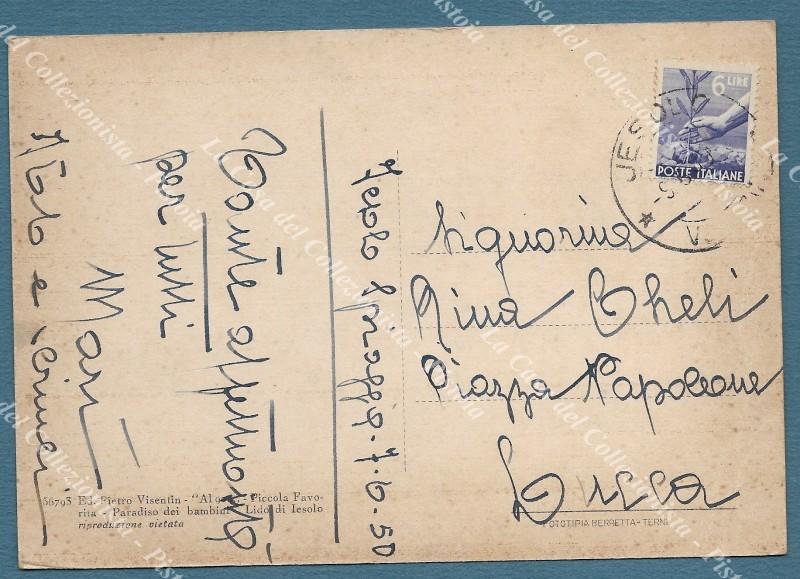 Jesolo Spiaggia. 7. 6. 50
Tante affettuosità
per tutti
Mari
Signorina
Rina Cheli
Piazza Napoleone
Lucca
6 LIRE
POSTE ITALIANE
JESOLO
56793 Ed. Pietro Visentin - Piccola Favo-
rita - Paradiso dei bambini Lido di Iesolo
riproduzione vietata
FOTOTIPIA BERRETTA - TERNI
La Casa del Collezionista - Pistoia